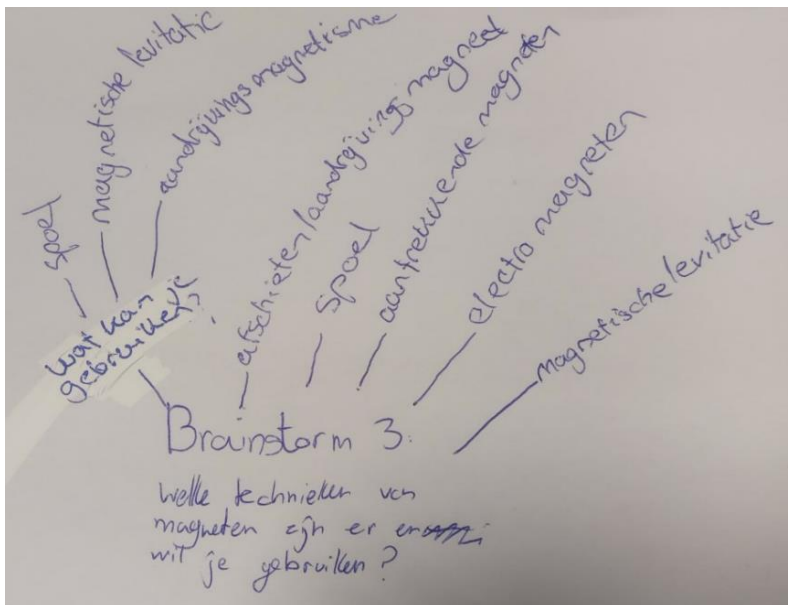 spoel
magnetische levitatie
aandrijvings magnetisme
wat kan je
gebruiken?
afschieten/aandrijvings magneet
spoel
aantrekkende magneten
electro magneten
magnetische levitatie
Brainstorm 3:
welke technieken van
magneten zijn er en
wil je gebruiken?